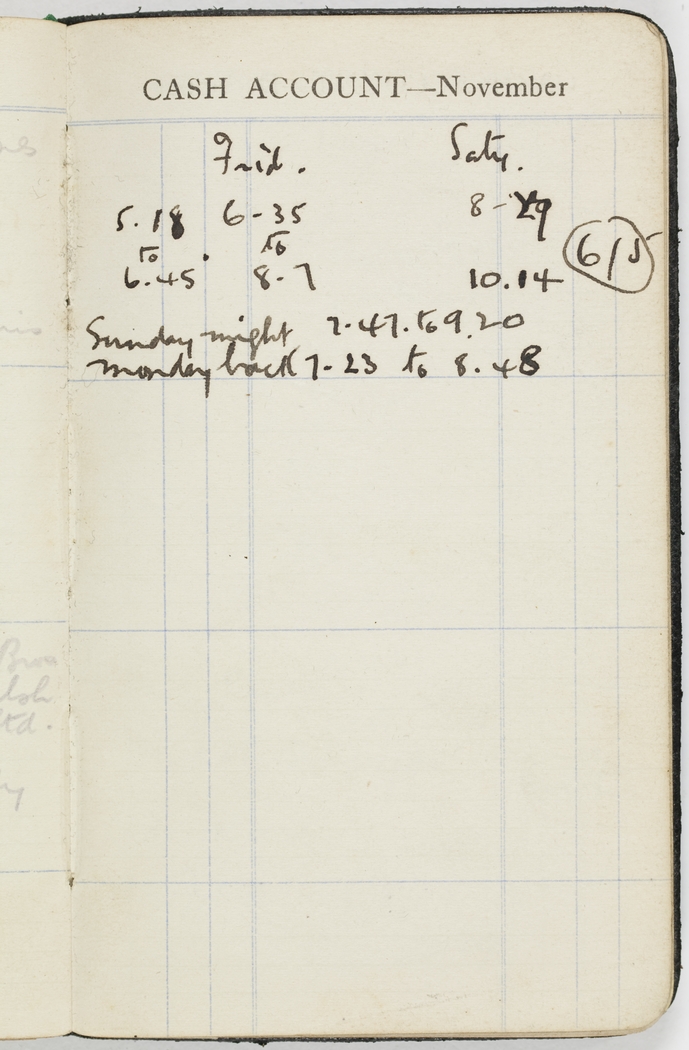 CASH ACCOUNT—November
Frid. Saty.
5.18 6-35 8-29
to to 6/5
6.45 8-7 10.14
Sunday night 7-47. to 9.20
Monday back 7-23 to 8.48